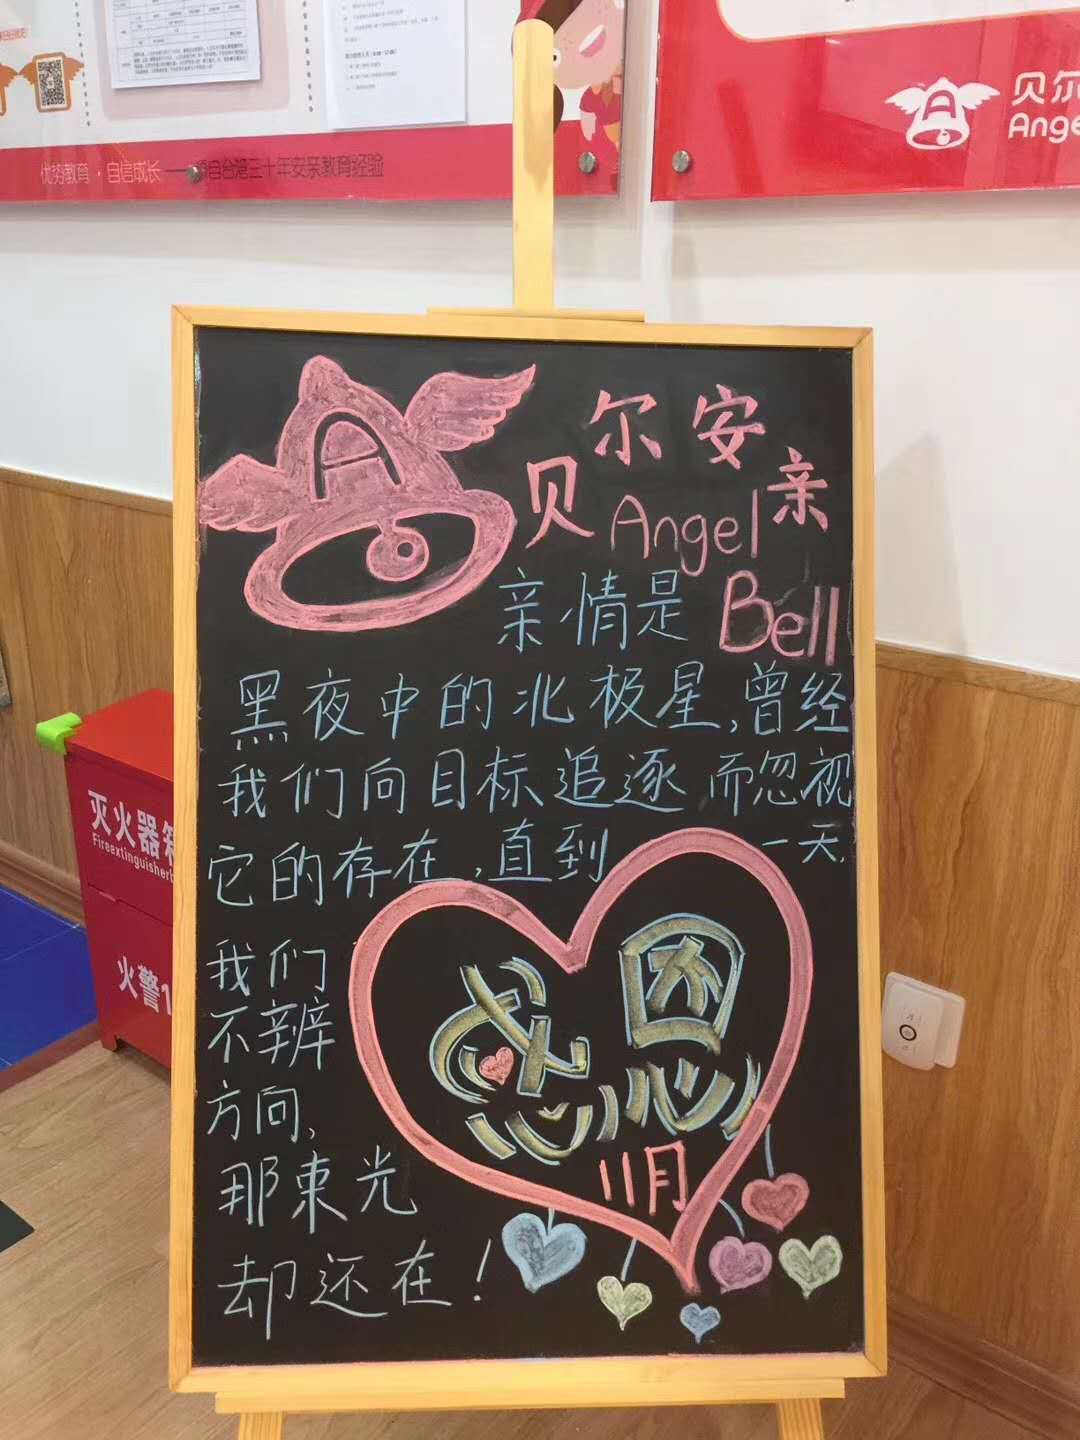 优势教育·自信成长——源自台湾三十年安亲教育经验
贝尔
Ange
贝尔安亲
Angel
Bell
亲情是
黑夜中的北极星,曾经
我们向目标追逐而忽视
它的存在,直到一天,
我们
不辨
方向,
那束光
却还在!
感恩
11月
灭火器箱
Fireextinguisherb
火警1